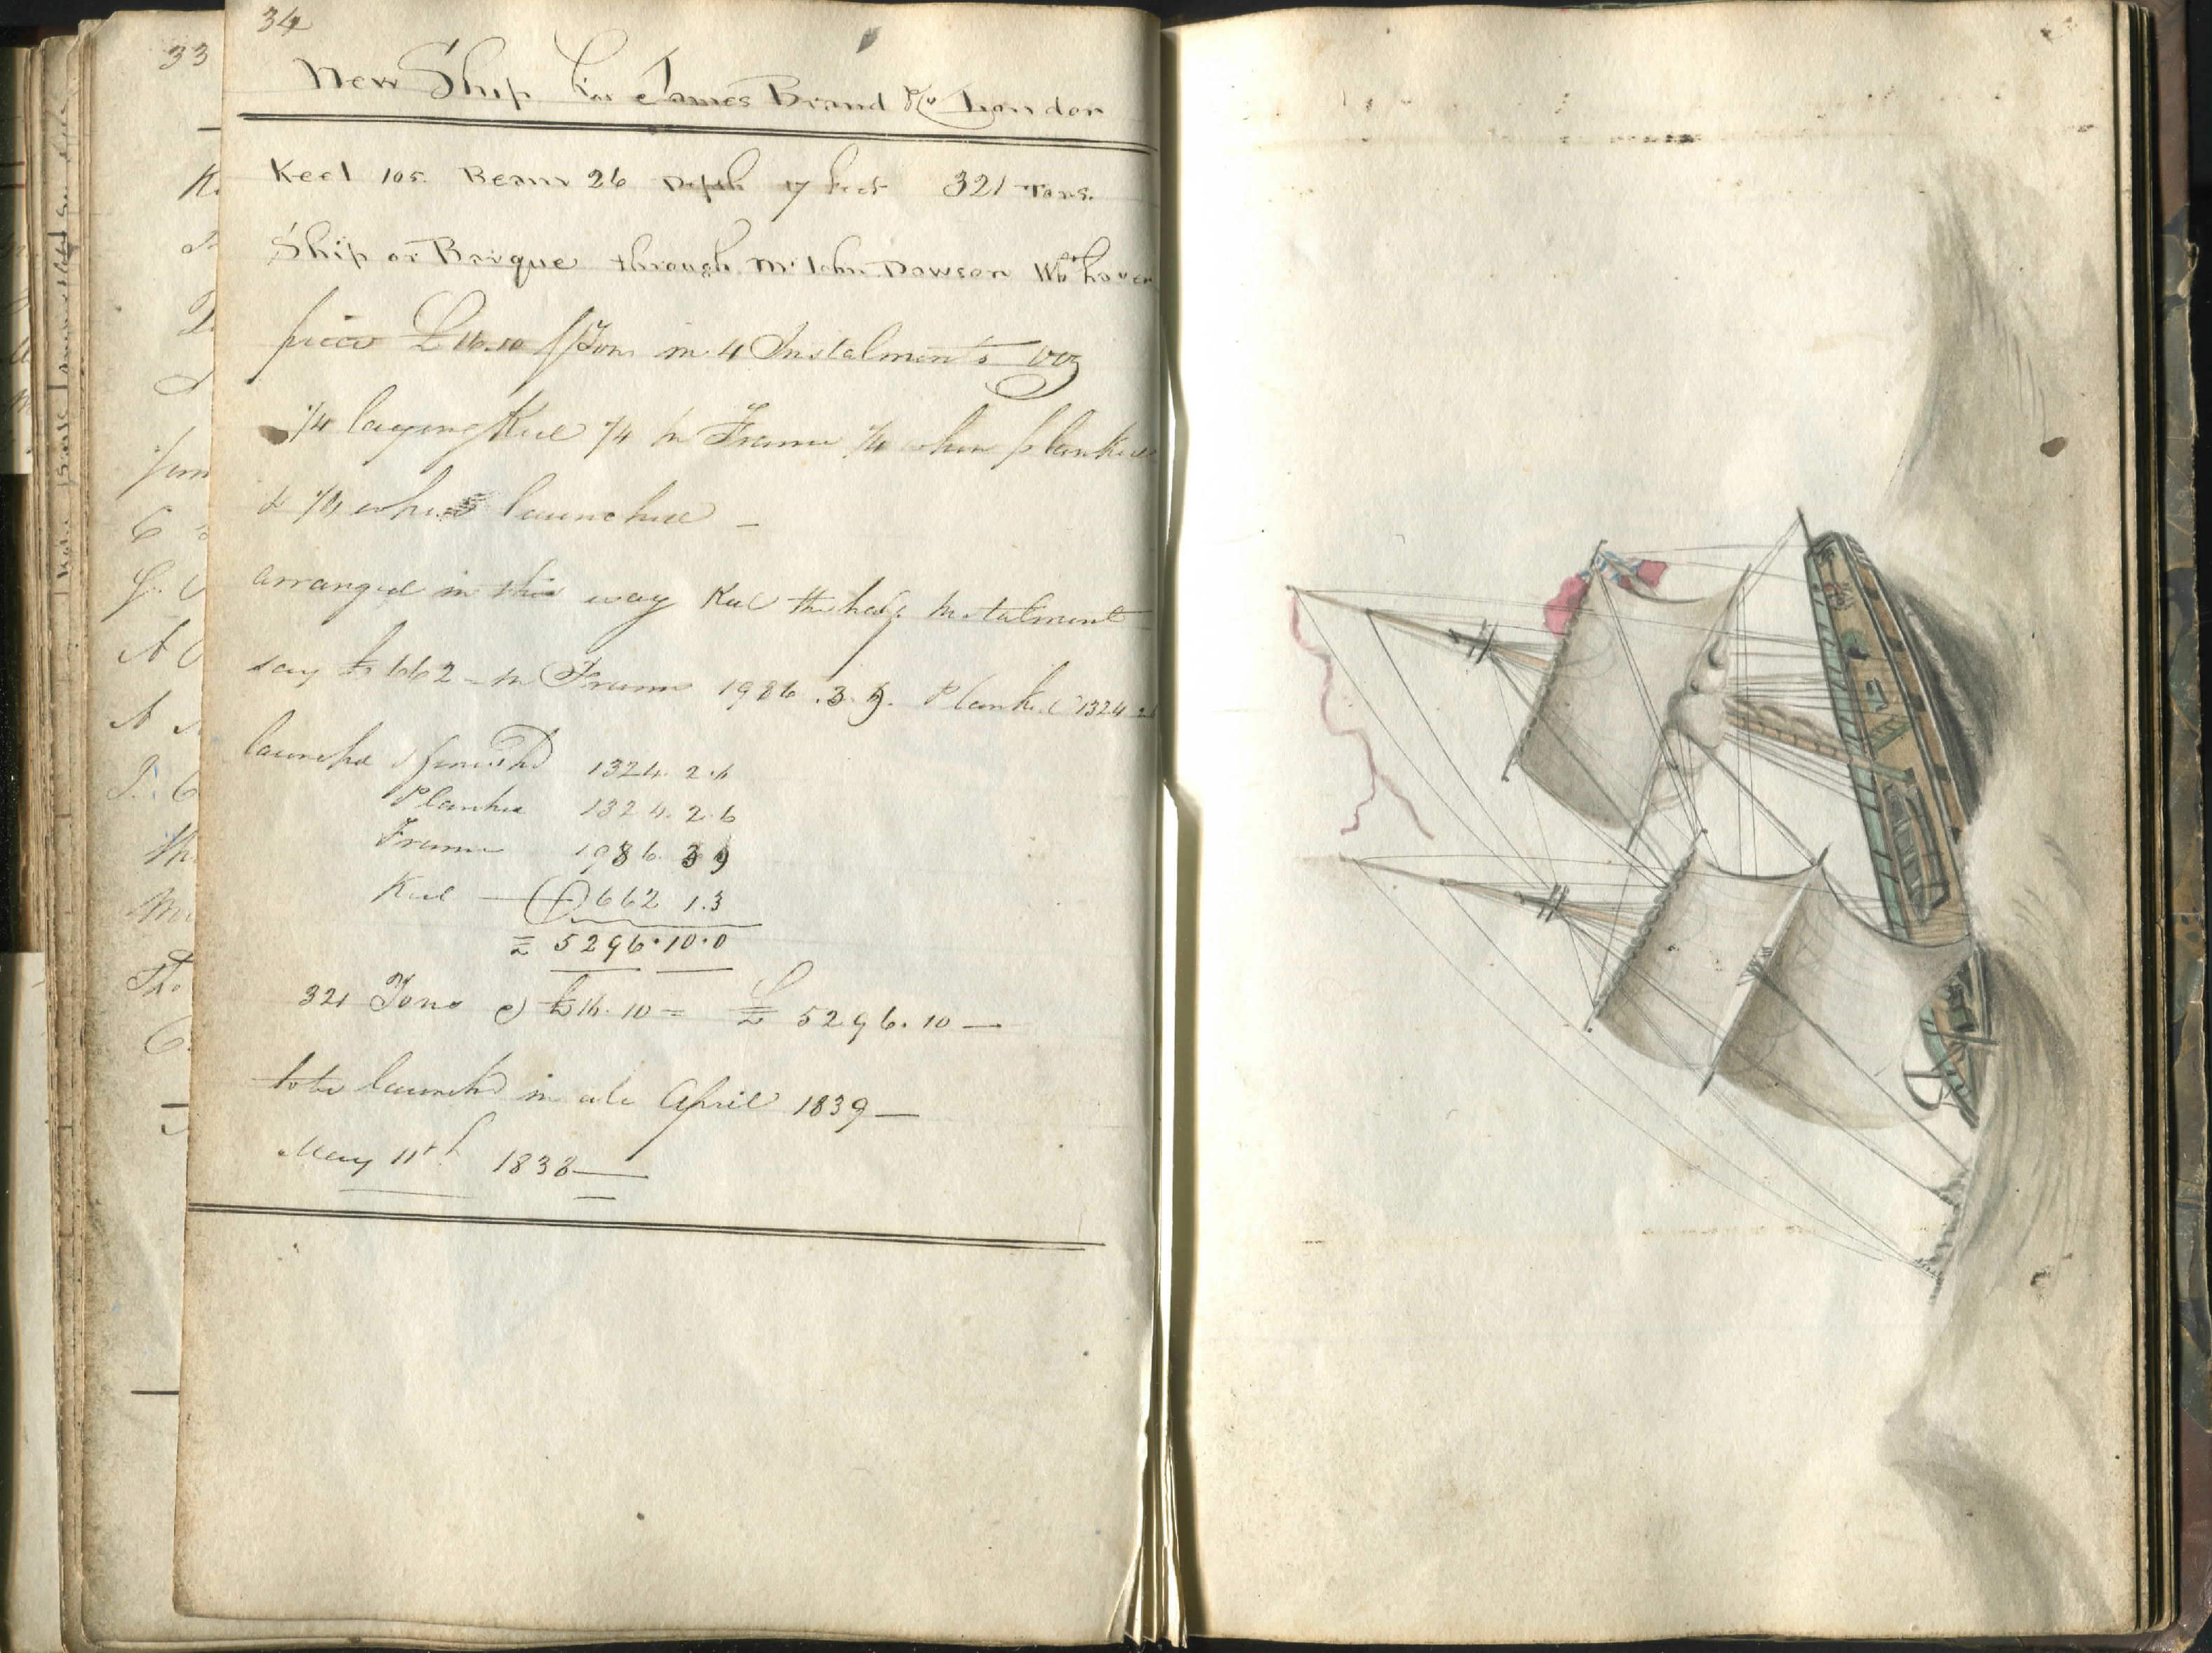 33
34
New Ship for James Brand Kr London
Keel 105. Beam 26 Depth 17 feet 321 Tons.
Ship or Barque through Mr John Dawson Wthaven
price £16.10 pr Ton in 4 Instalments viz
1/4 laying Keel 1/4 in Frame 1/4 when planked
& 1/4 when launched —
arranged in this way Keel the half Instalment
say £662 - in Frame 1986.3.9. Planked 1324 2
launchd & finishd 1324. 2.6
Planked 1324. 2.6
Frame 1986. 3 9
Keel — 662 1.3
£ 5296.10.0
321 Tons @ £16.10 = £ 5296.10 —
to be launchd in April 1839 —
May 11th 1838 —